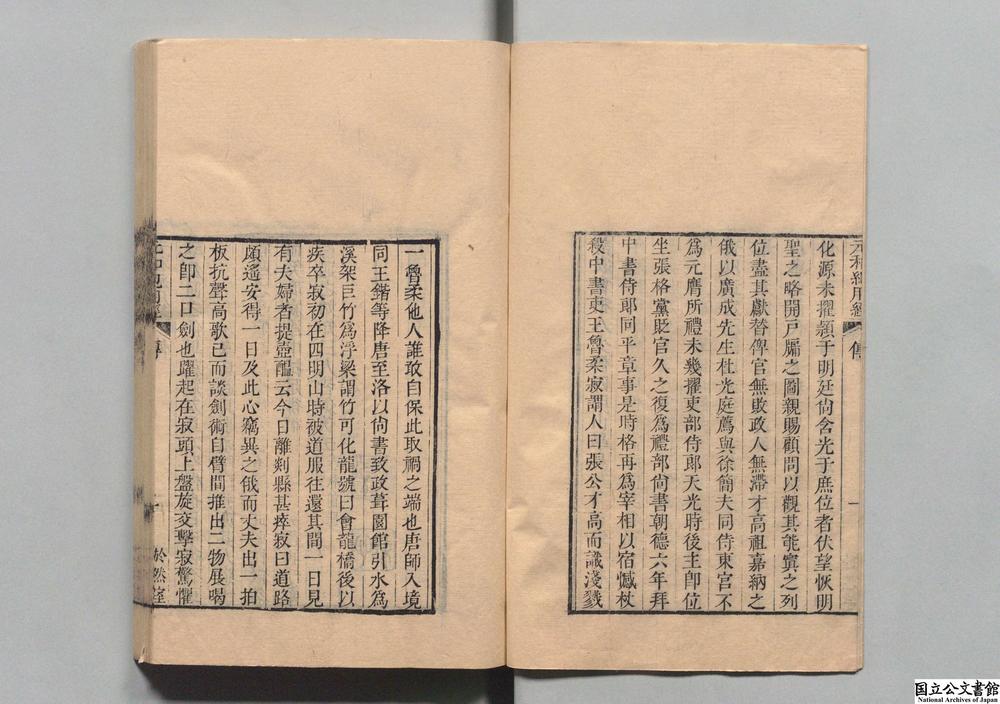 元和紀用經
傳
一
化源未擢頴于明廷尙含光于庶位者伏望恢明
聖之略開戸牖之圖親賜顧問以觀其能寘之列
位盡其獻替俾官無敗政人無滯才高祖嘉納之
俄以廣成先生杜光庭薦與徐簡夫同侍東宮不
爲元膺所禮未幾擢吏部侍郎天光時後主卽位
坐張格黨貶官久之復爲禮部尙書朝德六年拜
中書侍郎同平章事是時格再爲宰相以宿憾杖
殺中書吏王魯柔寂謂人曰張公才高而識淺戮
一魯柔他人誰敢自保此取禍之端也唐師入境
同王鍇等降唐至洛以尙書致政葺園館引水爲
溪架巨竹爲浮梁謂竹可化龍號曰會龍橋後以
疾卒寂初在四明山時被道服往還其間一日見
有夫婦者提壺醞云今日離剡縣甚瘁寂曰道路
頗遙安得一日及此心竊異之俄而丈夫出一拍
板抗聲高歌已而談劍術自臂間推出二物展喝
之卽二口劍也躍起在寂頭上盤旋交擊寂驚懼
傳
於然室
国立公文書館
National Archives of Japan